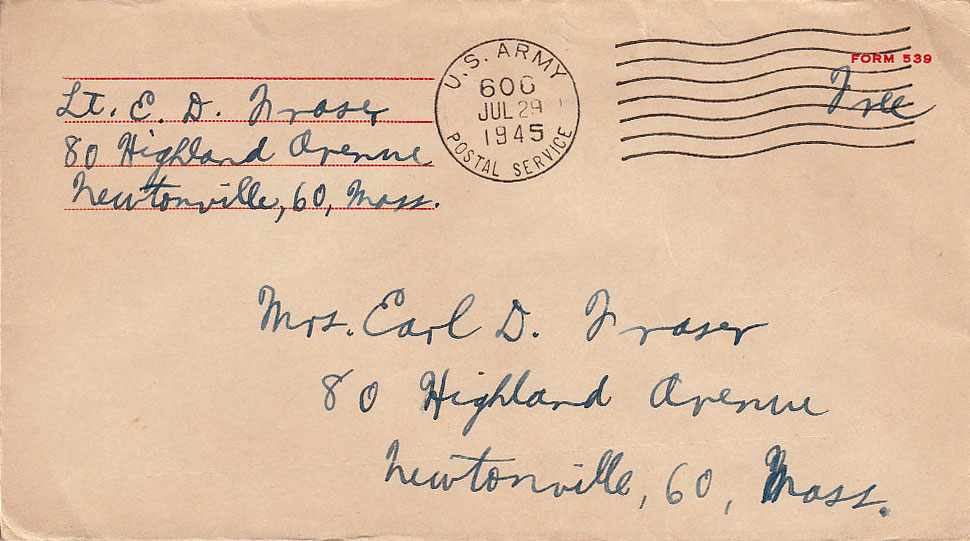 Lt. E. D. Fraser
80 Highland Avenue
Newtonville, 60, Mass.
U.S. ARMY
600
JUL 29
1945
POSTAL SERVICE
FORM 539
Free
Mrs. Earl D. Fraser
80 Highland Avenue
Newtonville, 60, Mass.